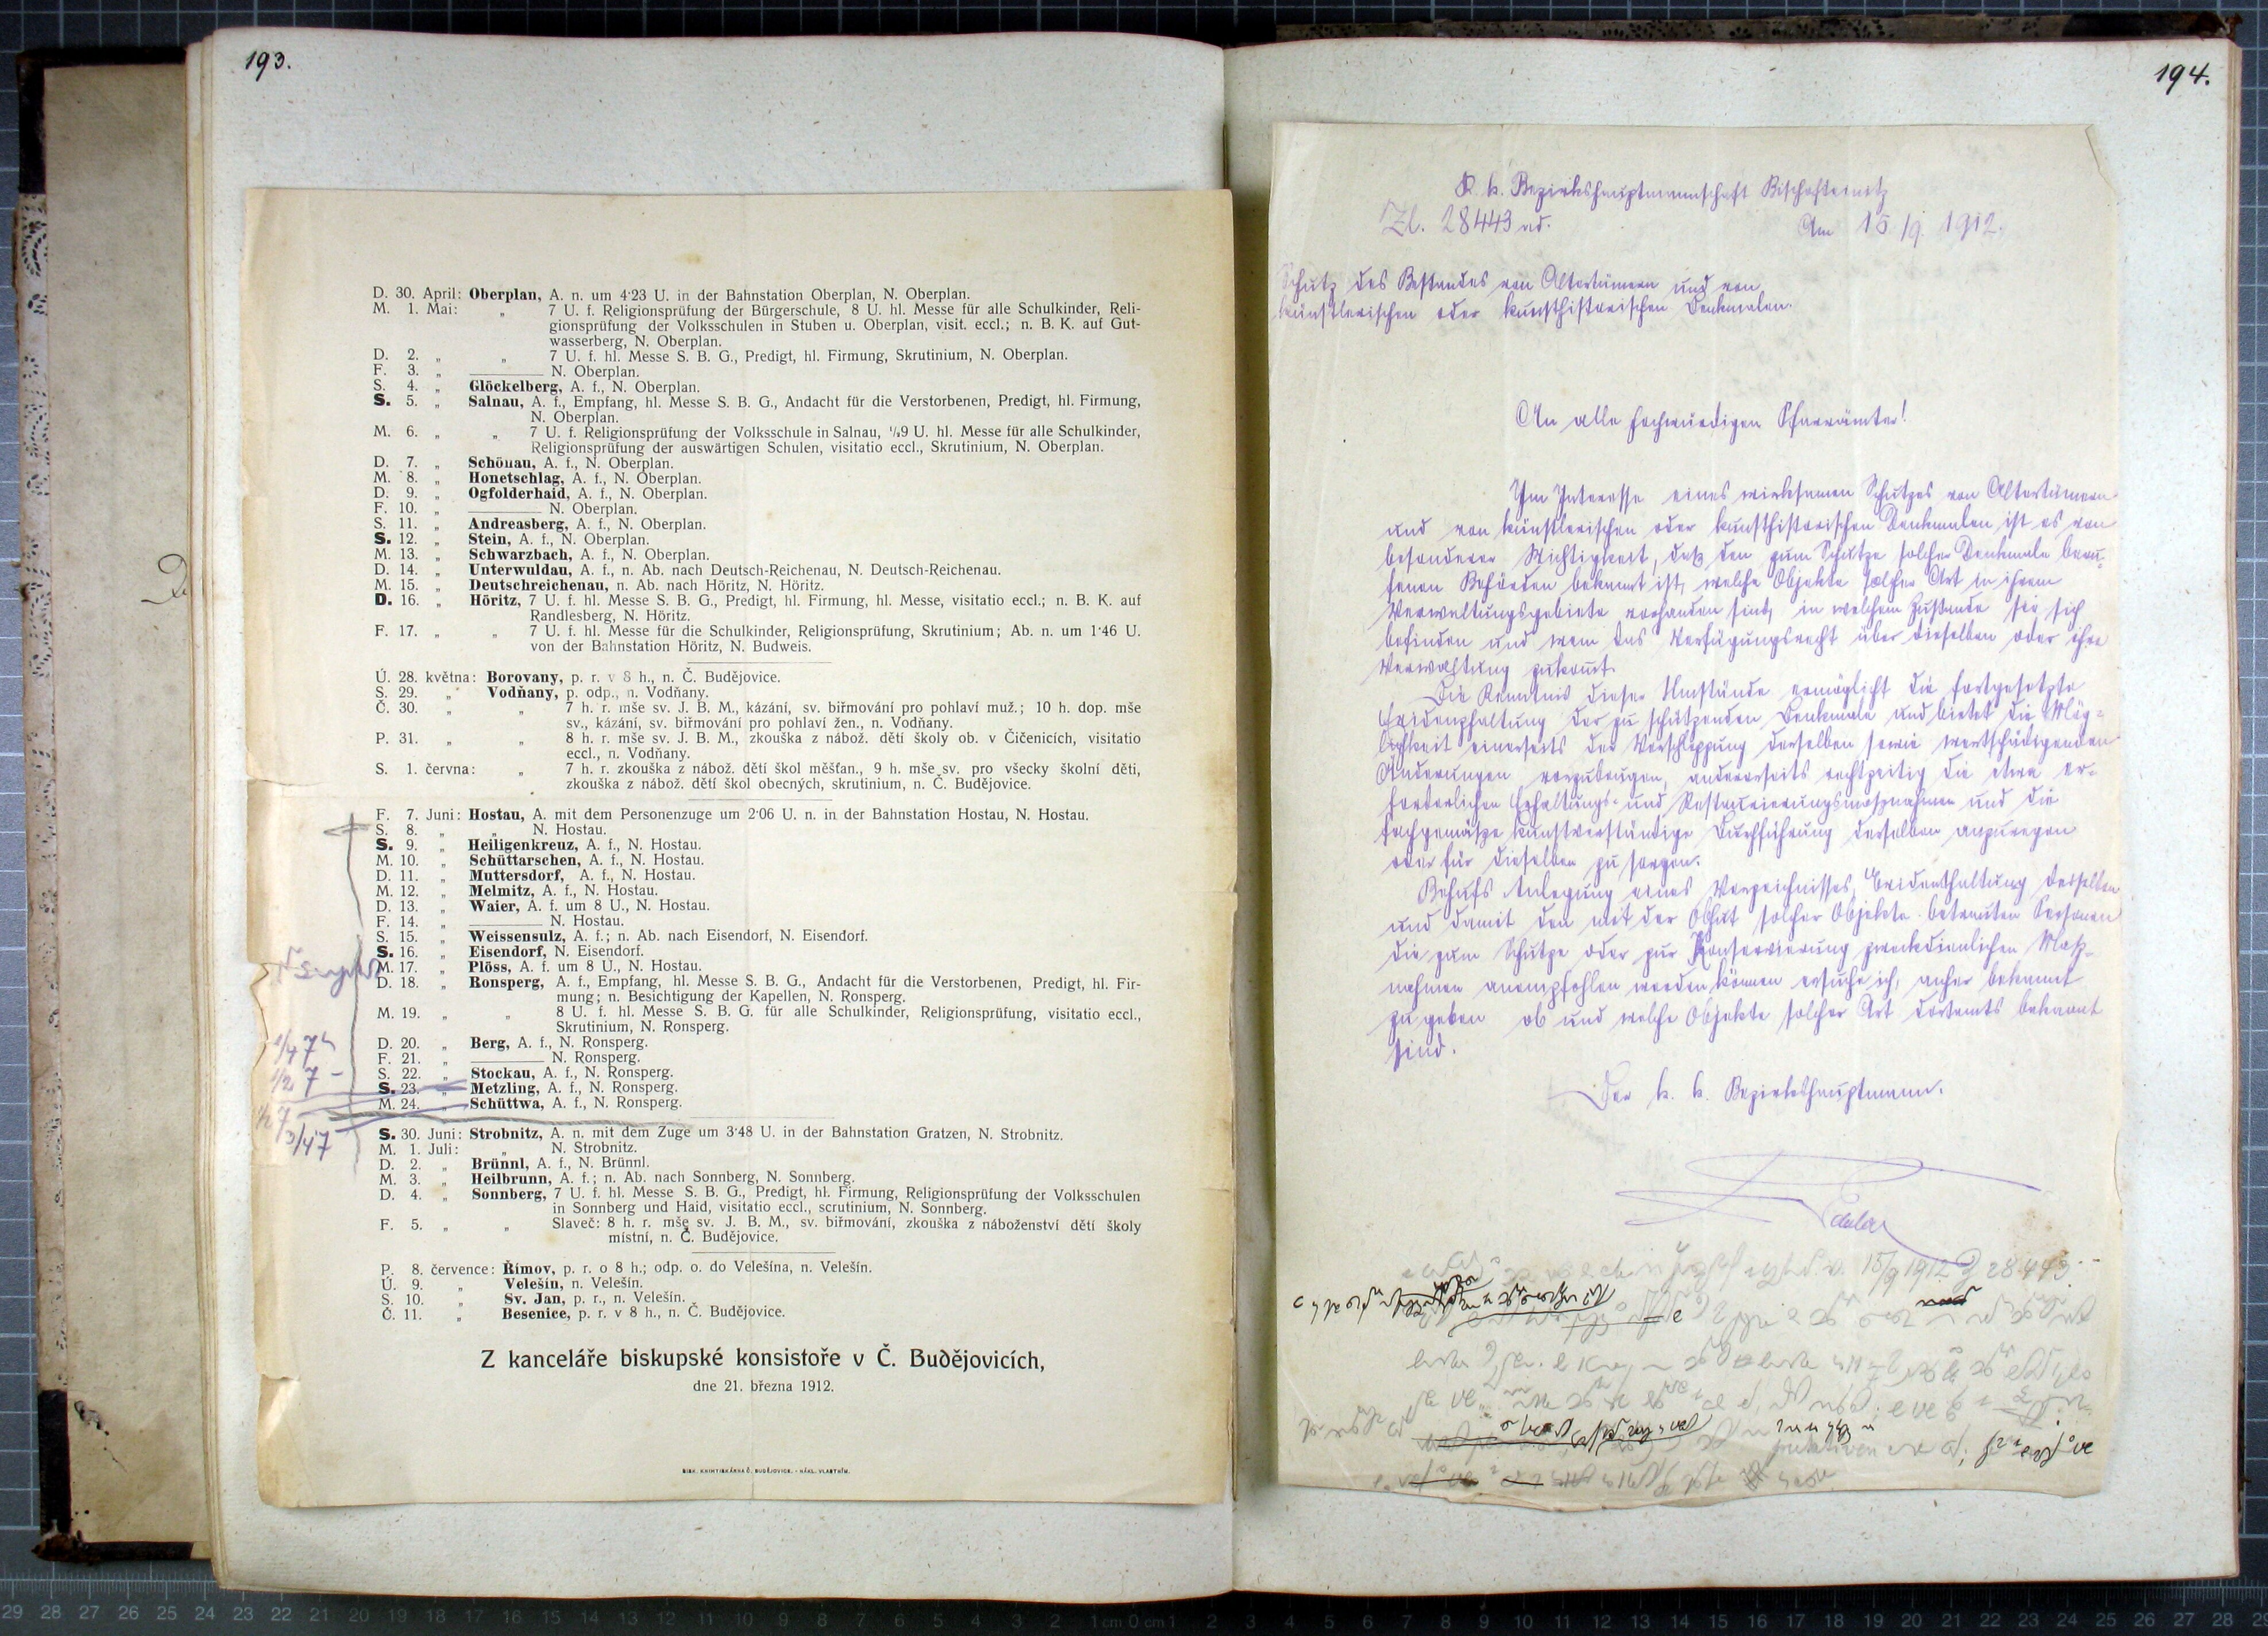 193.
D. 30. April: Oberplan, A. n. um 4·23 U. in der Bahnstation Oberplan, N. Oberplan.
M. 1. Mai: „ 7 U. f. Religionsprüfung der Bürgerschule, 8 U. hl. Messe für alle Schulkinder, Reli-
gionsprüfung der Volksschulen in Stuben u. Oberplan, visit. eccl.; n. B. K. auf Gut-
wasserberg, N. Oberplan.
D. 2. „ „ 7 U. f. hl. Messe S. B. G., Predigt, hl. Firmung, Skrutinium, N. Oberplan.
F. 3. „ ——— N. Oberplan.
S. 4. „ Glöckelberg, A. f., N. Oberplan.
S. 5. „ Salnau, A. f., Empfang, hl. Messe S. B. G., Andacht für die Verstorbenen, Predigt, hl. Firmung,
N. Oberplan.
M. 6. „ „ 7 U. f. Religionsprüfung der Volksschule in Salnau, ½9 U. hl. Messe für alle Schulkinder,
Religionsprüfung der auswärtigen Schulen, visitatio eccl., Skrutinium, N. Oberplan.
D. 7. „ Schönau, A. f., N. Oberplan.
M. 8. „ Honetschlag, A. f., N. Oberplan.
D. 9. „ Ogfolderhaid, A. f., N. Oberplan.
F. 10. „ ——— N. Oberplan.
S. 11. „ Andreasberg, A. f., N. Oberplan.
S. 12. „ Stein, A. f., N. Oberplan.
M. 13. „ Schwarzbach, A. f., N. Oberplan.
D. 14. „ Unterwuldau, A. f., n. Ab. nach Deutsch-Reichenau, N. Deutsch-Reichenau.
M. 15. „ Deutschreichenau, n. Ab. nach Höritz, N. Höritz.
D. 16. „ Höritz, 7 U. f. hl. Messe S. B. G., Predigt, hl. Firmung, hl. Messe, visitatio eccl.; n. B. K. auf
Randlesberg, N. Höritz.
F. 17. „ „ 7 U. f. hl. Messe für die Schulkinder, Religionsprüfung, Skrutinium; Ab. n. um 1·46 U.
von der Bahnstation Höritz, N. Budweis.
Ú. 28. května: Borovany, p. r. v 8 h., n. Č. Budějovice.
S. 29. „ Vodňany, p. odp., n. Vodňany.
Č. 30. „ „ 7 h. r. mše sv. J. B. M., kázání, sv. biřmování pro pohlaví muž.; 10 h. dop. mše
sv., kázání, sv. biřmování pro pohlaví žen., n. Vodňany.
P. 31. „ „ 8 h. r. mše sv. J. B. M., zkouška z nábož. dětí školy ob. v Čičenicích, visitatio
eccl., n. Vodňany.
S. 1. června: „ 7 h. r. zkouška z nábož. dětí škol měšťan., 9 h. mše sv. pro všecky školní děti,
zkouška z nábož. dětí škol obecných, skrutinium, n. Č. Budějovice.
F. 7. Juni: Hostau, A. mit dem Personenzuge um 2·06 U. n. in der Bahnstation Hostau, N. Hostau.
S. 8. „ „ N. Hostau.
S. 9. „ Heiligenkreuz, A. f., N. Hostau.
M. 10. „ Schüttarschen, A. f., N. Hostau.
D. 11. „ Muttersdorf, A. f., N. Hostau.
M. 12. „ Melmitz, A. f., N. Hostau.
D. 13. „ Waier, A. f. um 8 U., N. Hostau.
F. 14. „ ——— N. Hostau.
S. 15. „ Weissensulz, A. f.; n. Ab. nach Eisendorf, N. Eisendorf.
S. 16. „ Eisendorf, N. Eisendorf.
M. 17. „ Plöss, A. f. um 8 U., N. Hostau.
D. 18. „ Ronsperg, A. f., Empfang, hl. Messe S. B. G., Andacht für die Verstorbenen, Predigt, hl. Fir-
mung; n. Besichtigung der Kapellen, N. Ronsperg.
M. 19. „ „ 8 U. f. hl. Messe S. B. G. für alle Schulkinder, Religionsprüfung, visitatio eccl.,
Skrutinium, N. Ronsperg.
1/4 7h
D. 20. „ Berg, A. f., N. Ronsperg.
F. 21. „ ——— N. Ronsperg.
1/2 7
S. 22. „ Stockau, A. f., N. Ronsperg.
S. 23. „ Metzling, A. f., N. Ronsperg.
1/2 7
M. 24. „ Schüttwa, A. f., N. Ronsperg.
3/4 7
S. 30. Juni: Strobnitz, A. n. mit dem Zuge um 3·48 U. in der Bahnstation Gratzen, N. Strobnitz.
M. 1. Juli: „ N. Strobnitz.
D. 2. „ Brünnl, A. f., N. Brünnl.
M. 3. „ Heilbrunn, A. f.; n. Ab. nach Sonnberg, N. Sonnberg.
D. 4. „ Sonnberg, 7 U. f. hl. Messe S. B. G., Predigt, hl. Firmung, Religionsprüfung der Volksschulen
in Sonnberg und Haid, visitatio eccl., scrutinium, N. Sonnberg.
F. 5. „ „ Slaveč: 8 h. r. mše sv. J. B. M., sv. biřmování, zkouška z náboženství dětí školy
místní, n. Č. Budějovice.
P. 8. července: Římov, p. r. o 8 h.; odp. o. do Velešína, n. Velešín.
Ú. 9. „ Velešín, n. Velešín.
S. 10. „ Sv. Jan, p. r., n. Velešín.
Č. 11. „ Besenice, p. r. v 8 h., n. Č. Budějovice.
Z kanceláře biskupské konsistoře v Č. Budějovicích,
dne 21. března 1912.
BISK. KNIHTISKÁRNA Č. BUDĚJOVICE. - NÁKL. VLASTNÍM.
194.
K. k. Bezirkshauptmannschaft Bischofteinitz
Zl. 28443 ad. Am 15/9. 1912.
Schutz des Bestandes von Altertümern und von
künstlerischen oder kunsthistorischen Denkmalen.
An alle hochwürdigen Pfarrämter!
Im Interesse eines wirksamen Schutzes von Altertümern
und von künstlerischen oder kunsthistorischen Denkmalen ist es von
besonderer Wichtigkeit, daß den zum Schutze solcher Denkmale beru-
fenen Behörden bekannt ist, welche Objekte solcher Art in ihrem
Verwaltungsgebiete vorhanden sind, in welchem Zustande sie sich
befinden und wem das Verfügungsrecht über dieselben oder ihre
Verwaltung zukomt.
Die Kenntnis dieser Umstände ermöglicht die fortgesetzte
Evidenzhaltung der zu schützenden Denkmale und bietet die Mög-
lichkeit einerseits der Verschleppung derselben sowie wertschädigenden
Änderungen vorzubeugen, andererseits rechtzeitig die etwa er-
forderlichen Erhaltungs- und Restaurierungsmaßnahmen und die
fachgemäße kunstverständige Durchführung derselben anzuregen
oder für dieselben zu sorgen.
Behufs Anlegung eines Verzeichnisses, Evidenthaltung desselben
und damit den mit der Obhut solcher Objekte betrauten Personen
die zum Schutze oder zur Konservierung zweckdienlichen Maß-
nahmen anempfohlen werden können ersuche ich, anher bekannt
zu geben ob und welche Objekte solcher Art dortamts bekannt
sind.
Der k. k. Bezirkshauptmann.
15/9 1912 28443